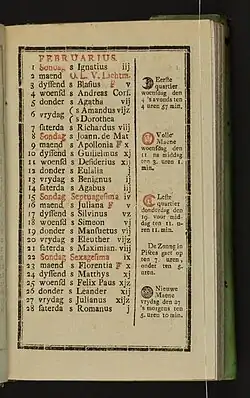 FEBRUARIUS.
1 Sondag s Ignatius iij
2 maend O. L. V. Lichtm.
3 dyssend s Blasius F v
4 woensd s Andreas Cors.
5 donder s Agatha vj
6 vrydag s Amandus vijz
s Dorothea
7 saterda s Richardus viij
8 Sondag s Joann. de Mat
9 maend s Apollonia F x
10 dyssend s Guilielmus xj
11 woensd s Desiderius xij
12 donder s Eulalia
13 vrydag s Benignus j
14 saterda s Agabus iij
15 Sondag Septuagesima iv
16 maend s Juliana F v
17 dyssend s Silvinus vz
18 woensd s Simeon vj
19 donder s Mansuetus vij
20 vrydag s Eleuther vijz
21 saterda s Maximian. viij
22 Sondag Sexagesima ix
23 maend s Florentia F x
24 dyssend s Matthys xj
25 woensd s Felix Paus xjz
26 donder s Leander xij
27 vrydag s Julianus xijz
28 saterda s Romanus j
Eerste
quartier
woensdag den
4 's avonds ten
4 uren 57 min.
Volle
Maene
woensdag den
11 na middag
ten 3. uren 1.
min.
Lest
quartier
donderdag den
19. voor mid-
dag ten 11. u-
ren 11. min.
De Zonne in
Pisces gaet op
ten 7 uren,
onder ten 5.
uren.
Nieuwe
Maene
vrydag den 27
's morgens ten
5. uren 10 min.